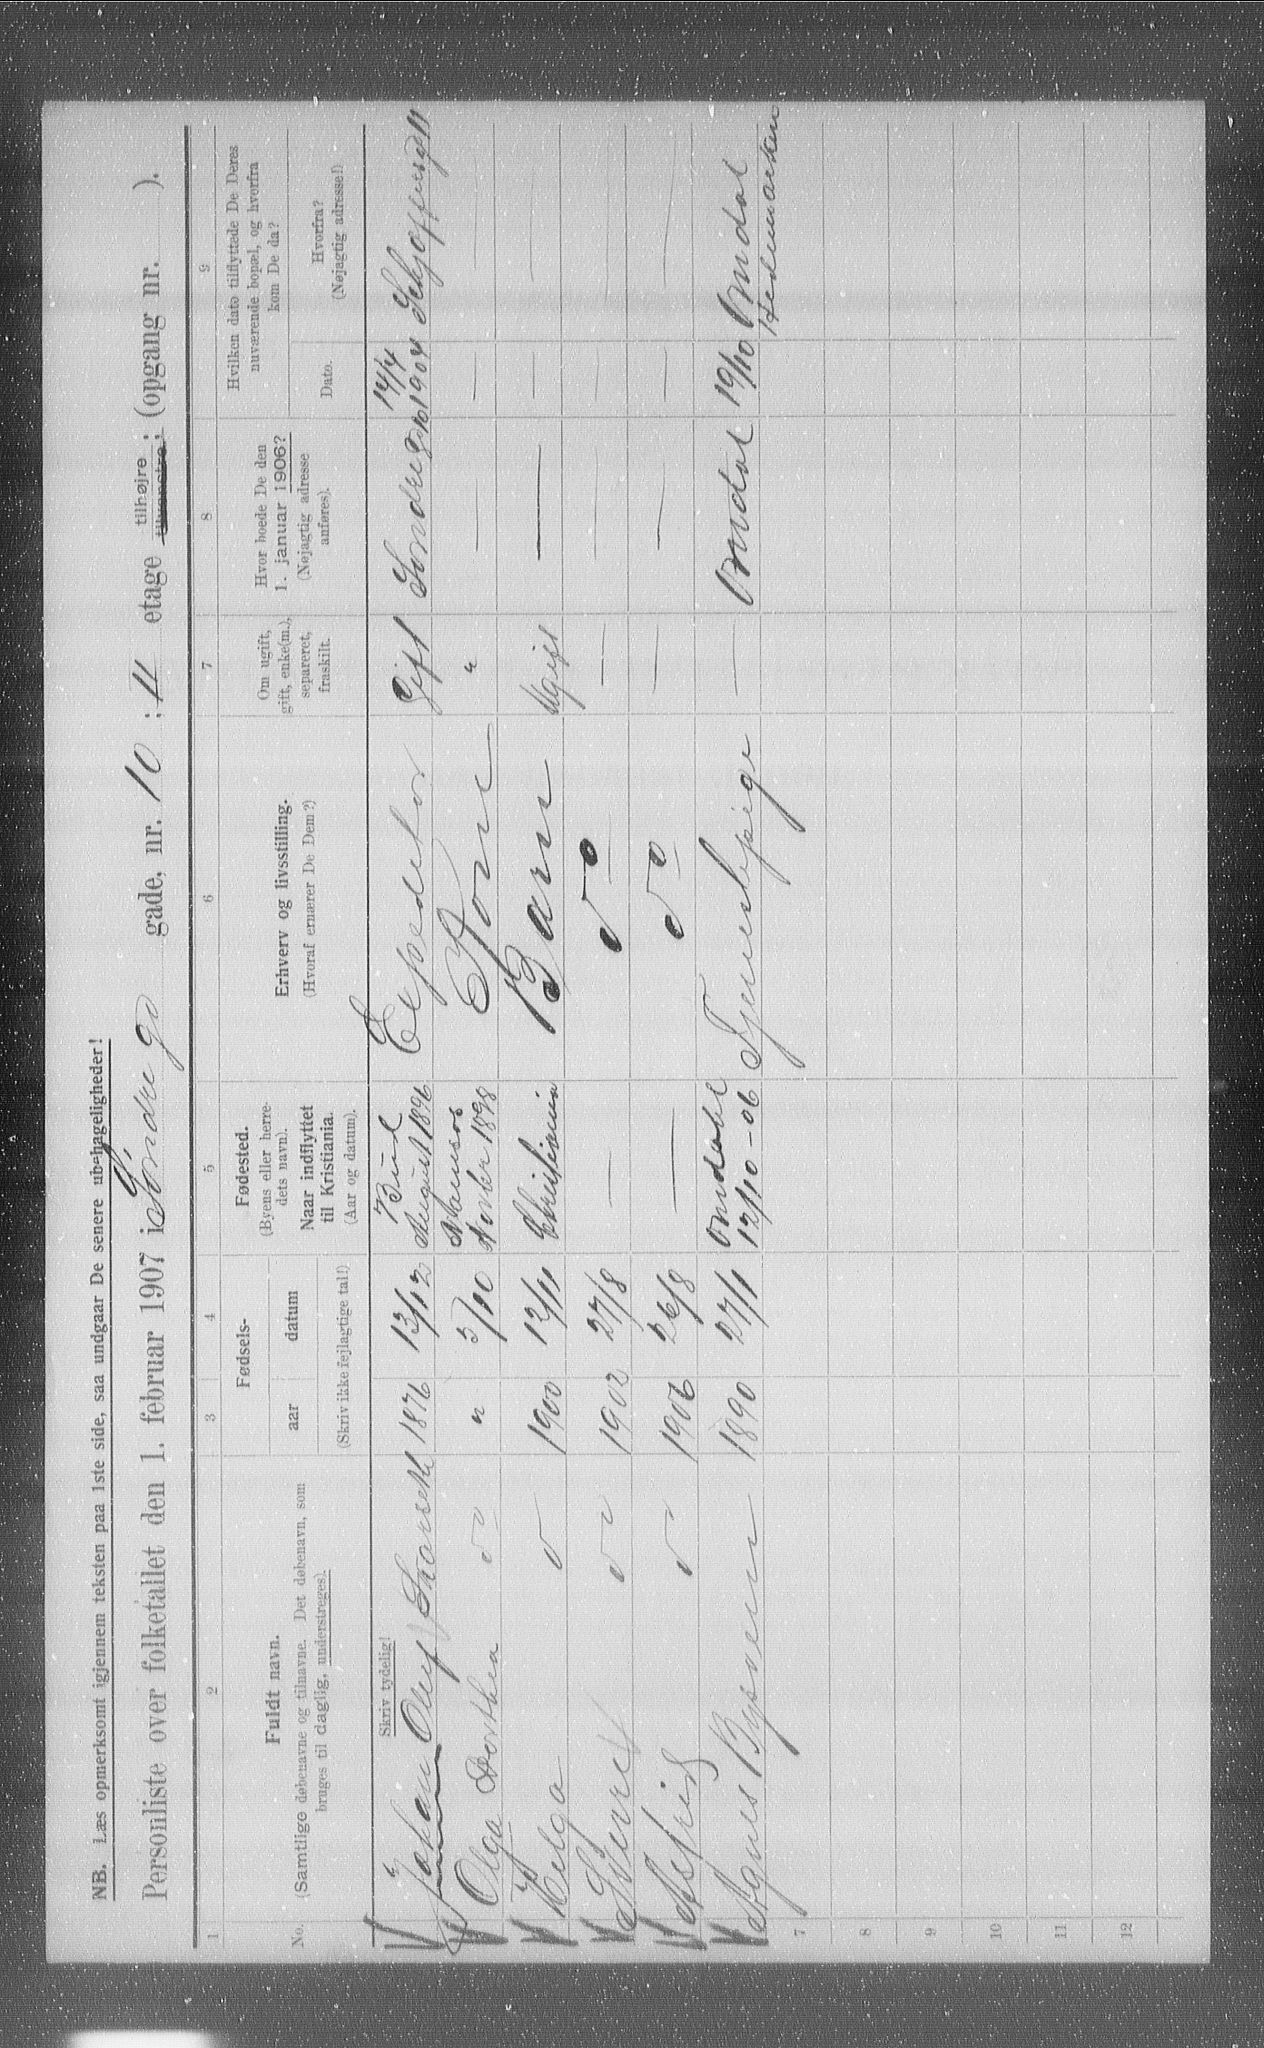 NB. Læs opmerksomt igjennem teksten paa 1ste side, saa undgaar De senere ubehageligheder!
Personliste over folketallet den 1. februar 1907 i Söndre gd gade, nr. 10 : II etage tilhøjre tilvenstre; (opgang nr. ).
1 2 3 4 5 6 7 8 9
No.
Fuldt navn.
(Samtlige døbenavne og tilnavne. Det døbenavn, som
bruges til daglig, understreges).
Skriv tydelig!
Fødsels-
aar datum
(Skriv ikke fejlagtige tal!)
Fødested.
(Byens eller herre-
dets navn).
Naar indflyttet
til Kristiania.
(Aar og datum).
Erhverv og livsstilling.
(Hvoraf ernærer De Dem?)
Om ugift,
gift, enke(m.),
separeret,
fraskilt.
Hvor boede De den
1. januar 1906?
(Nøjagtig adresse
anføres).
Hvilken dato tilflyttede De Deres
nuværende bopæl, og hvorfra
kom De da?
Dato.
Hvorfra?
(Nøjagtig adresse!)
Johan Oluf 1876 13/12 August 1896 Expeditør Gift Söndre gd 10 14/4 1904
Olga Dorthea do " 3/10 1898 Kone "
Helga 1900 12/11 Christiania Barn Ugift
Sverre 1902 27/8 — do —
1906 26/8 — do —
Agnes Bysveen 1890 27/1 Omdal 12/10-06 Tjenestepige — Omdal 19/10 Omdal
Hedemarken
7
8
9
10
11
12